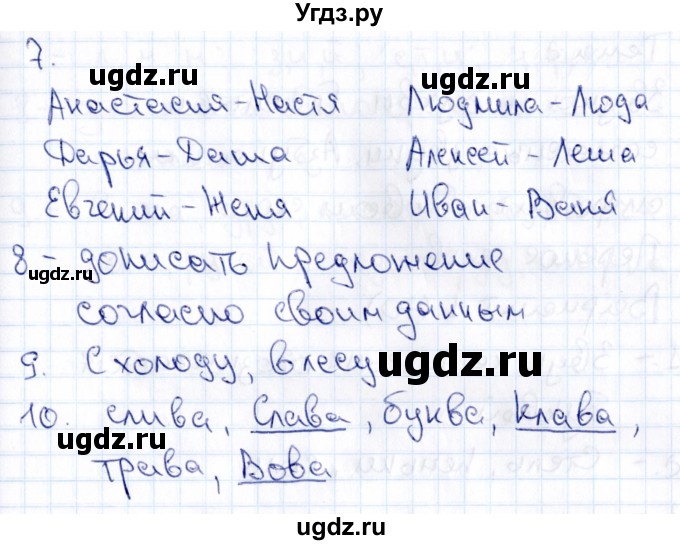 Угдз.ру
7.
ugdz.ru ugdz.ru
Анастасия - Настя Людмила - Люда
Дарья - Даша Алексей - Леша
ugdz.ru ugdz.ru
Евгений - Женя Иван - Ваня
8 - дописать предложение
ugdz.ru
согласно своим данным
9. С холоду, в лесу
ugdz.ru
10. слива, Слава, буква, клава,
трава, Вова
ugdz.ru ugdz.ru
ugdz.ru